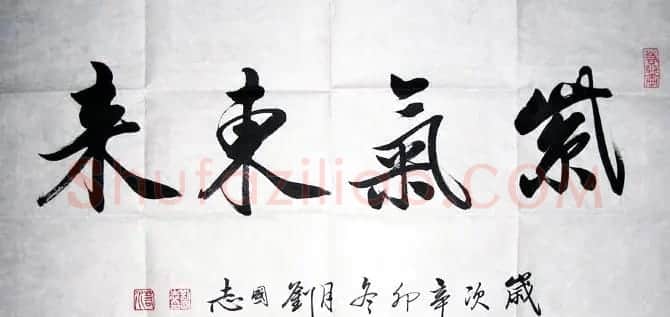 紫氣東来
歲次辛卯冬月劉國志
Shufaziliao.COM